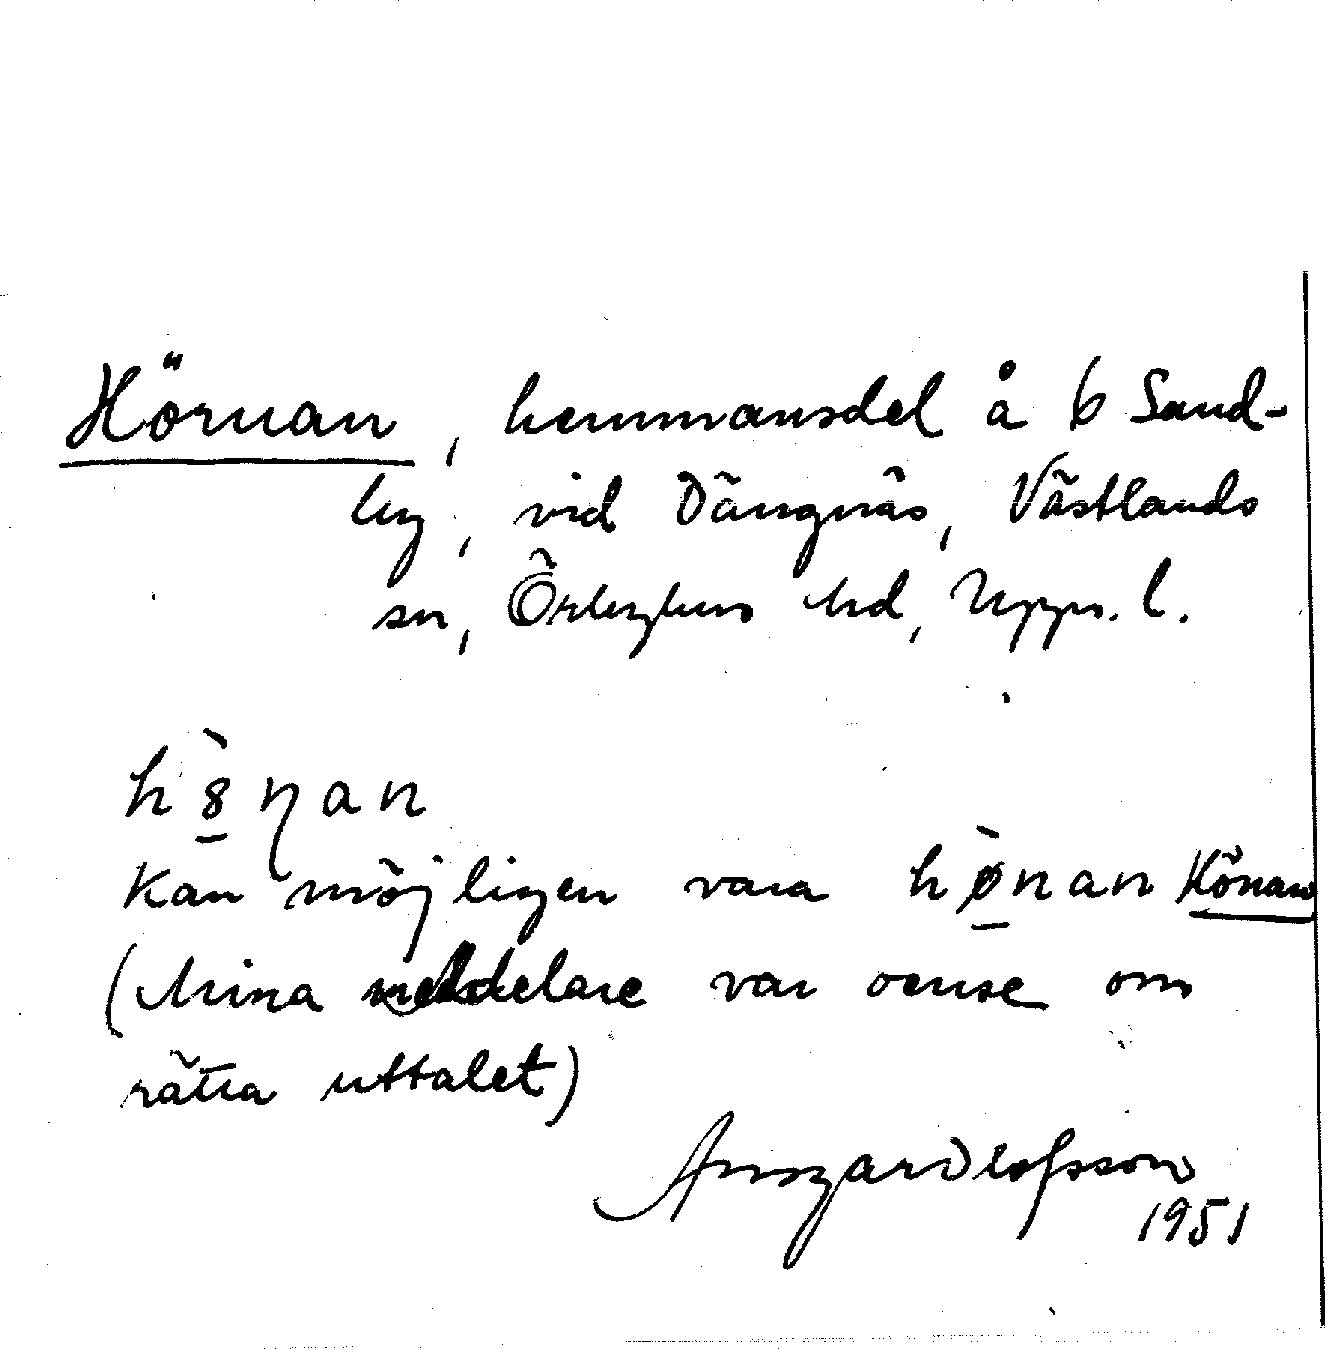 Hörnan, hemmansdel å 6 Sand-
by, vid Dängnäs, Västlands
sn, Örbyhus hd, Upps. l.
kan möjligen vara hø̀nan Hönan
(Mina meddelare var oense om
rätta uttalet)
Ansgar Olofsson
1951